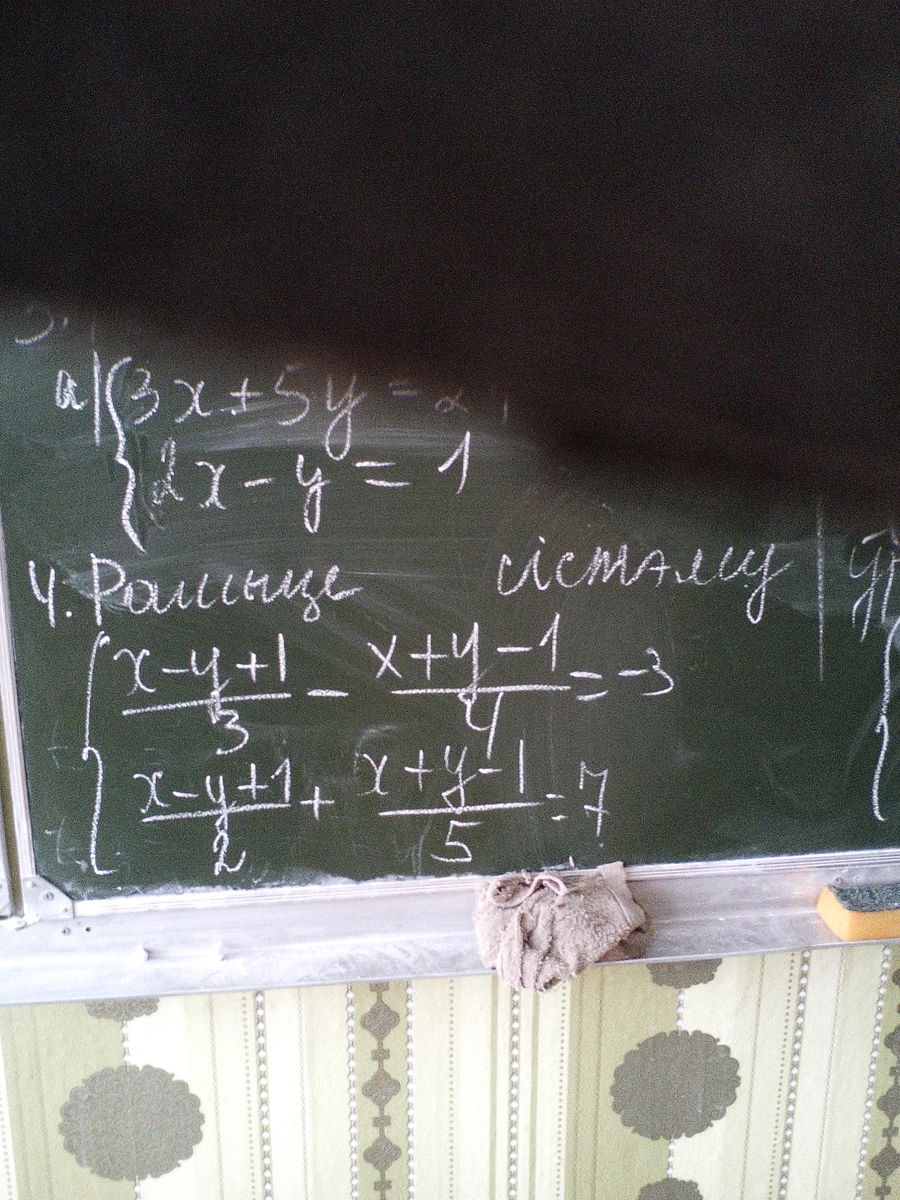 3.
а) { 3x + 5y =
2x - y = 1
4. Рашыце сістэму
{ (x-y+1)/3 - (x+y-1)/4 = -3
(x-y+1)/2 + (x+y-1)/5 = 7